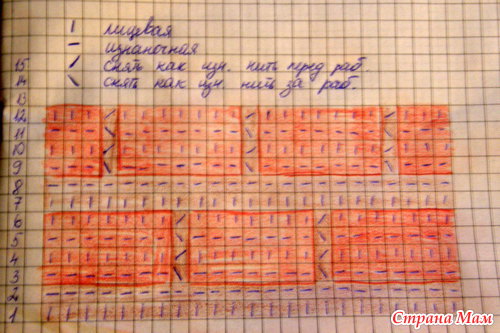 | лицевая
– изнаночная
15 / снять как изн. нить перед раб.
14 \ снять как изн. нить за раб.
13
12
11
10
9
8
7
6
5
4
3
2
1
Страна Мам